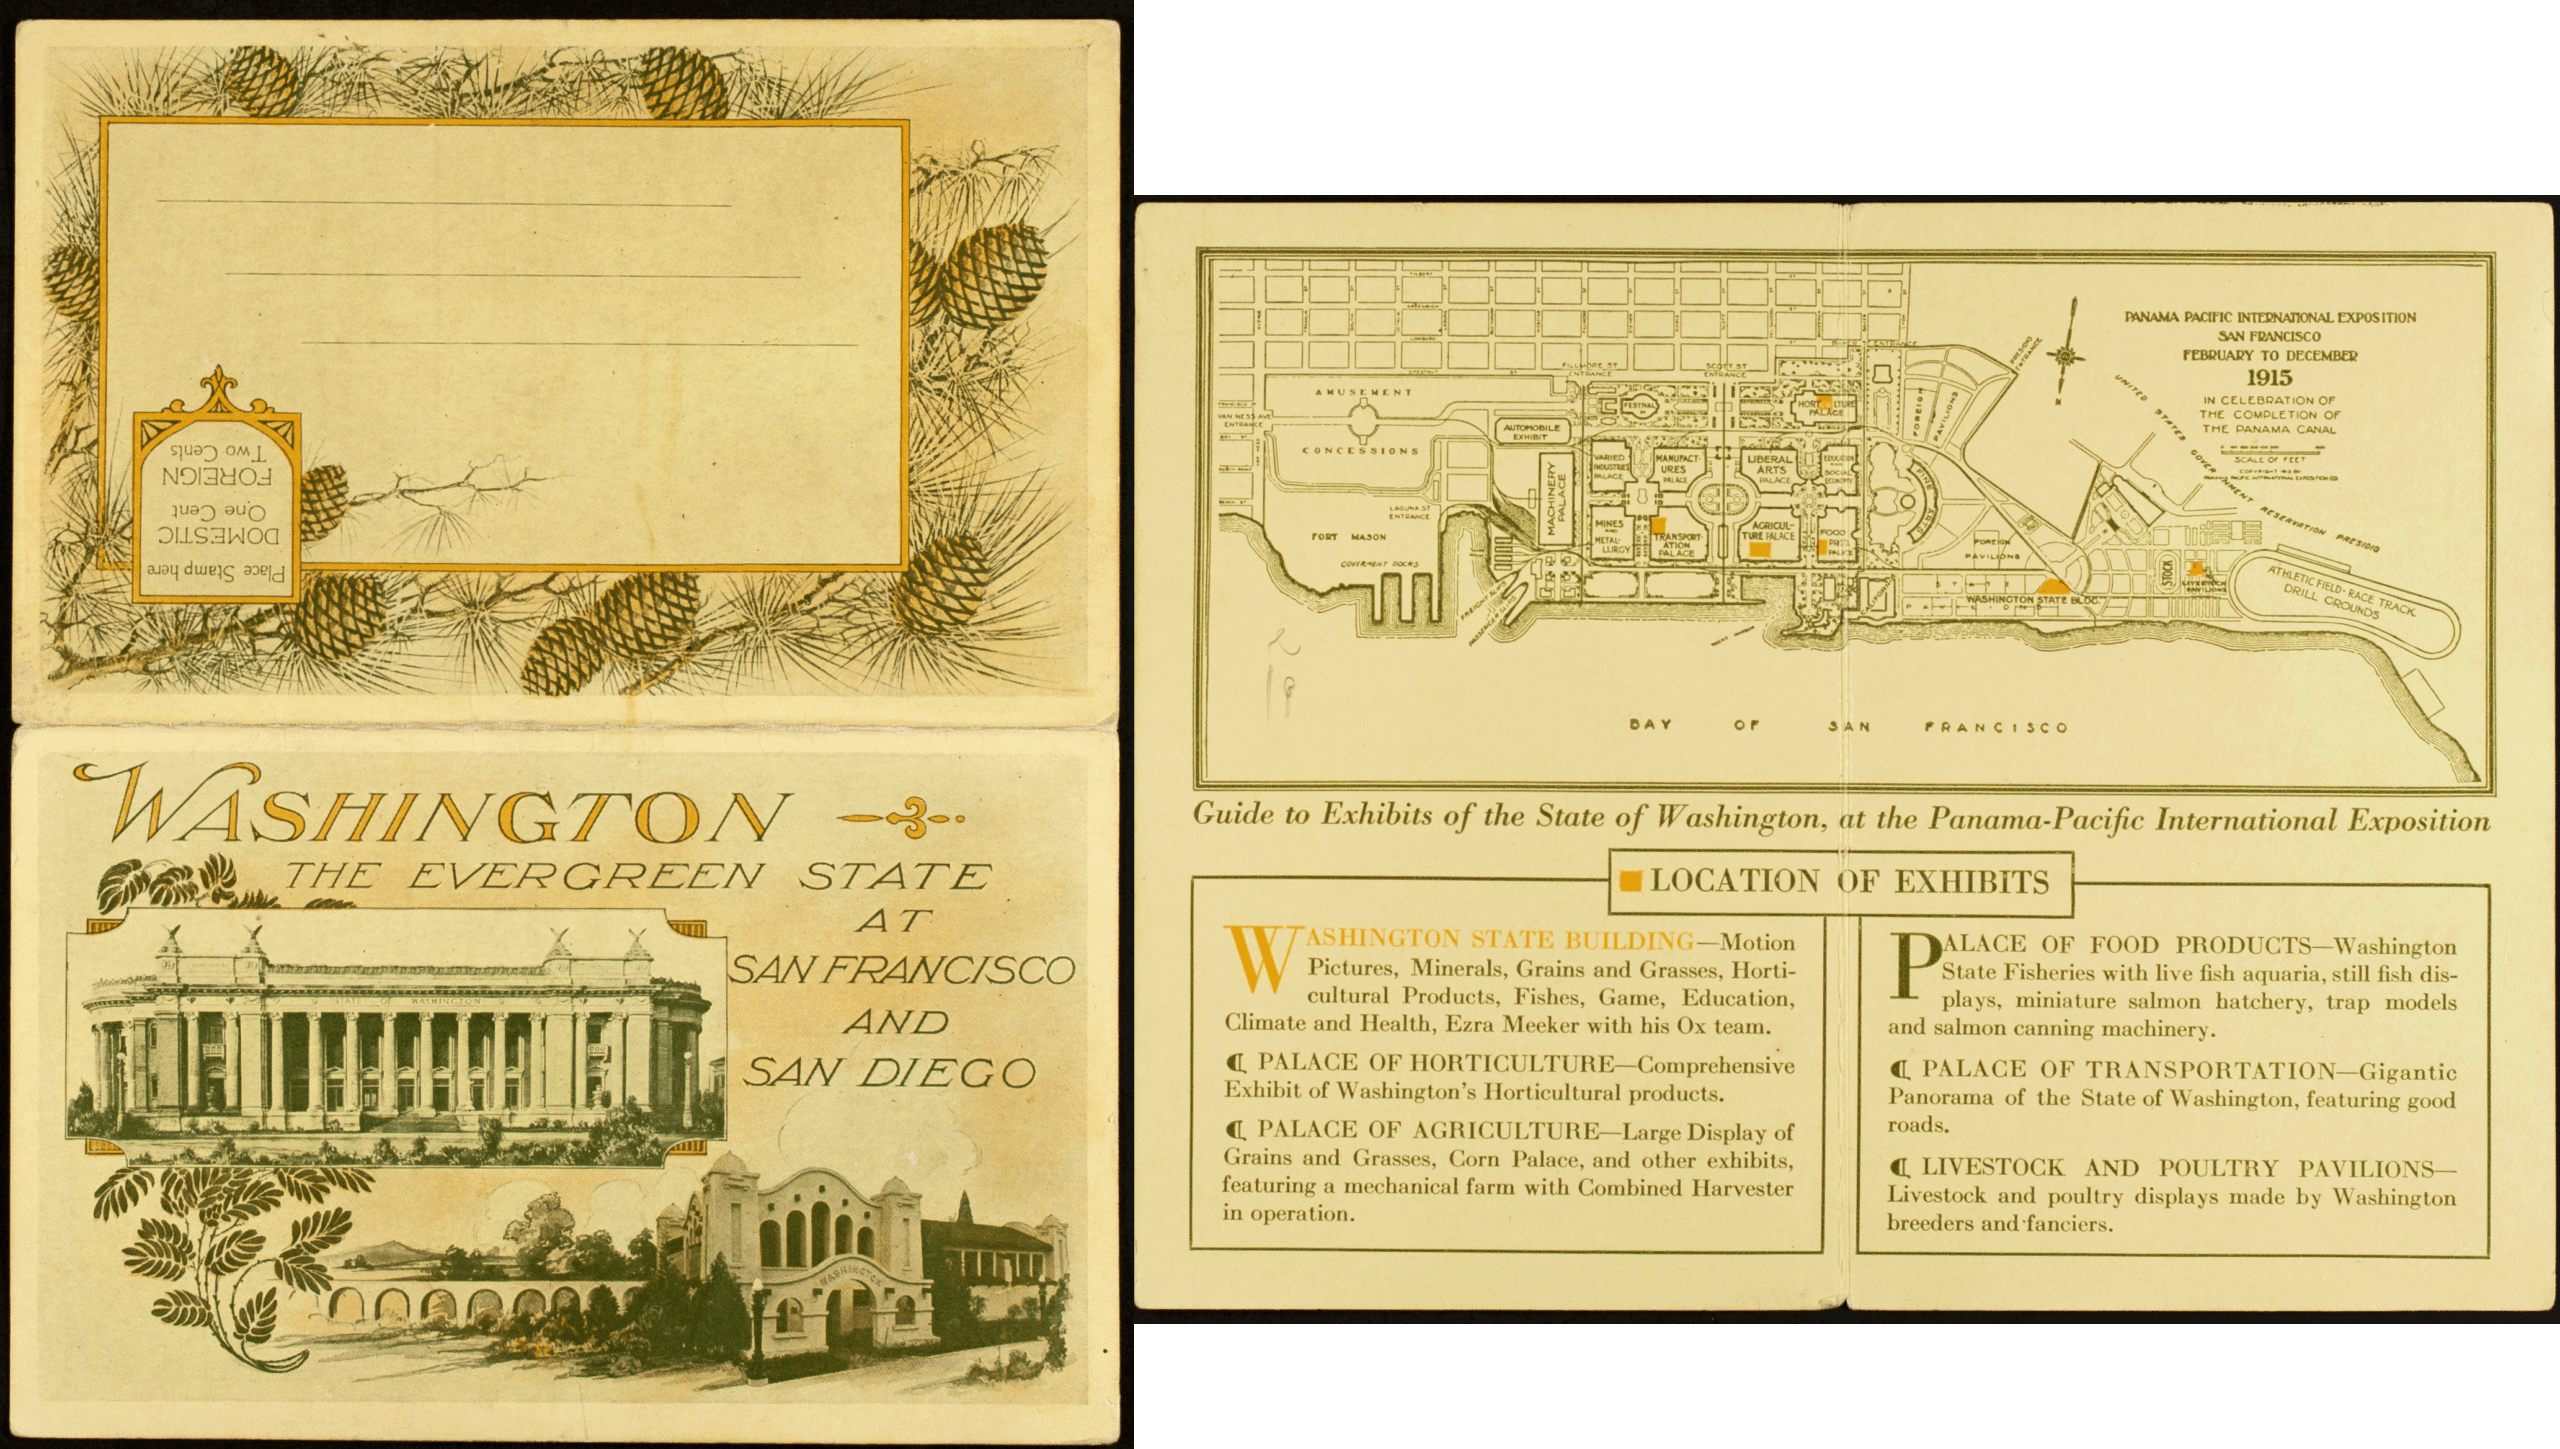 Place Stamp here
DOMESTIC
One Cent
FOREIGN
Two Cents
WASHINGTON
THE EVERGREEN STATE
AT
SAN FRANCISCO
AND
SAN DIEGO
STATE OF WASHINGTON
WASHINGTON
PANAMA PACIFIC INTERNATIONAL EXPOSITION
SAN FRANCISCO
FEBRUARY TO DECEMBER
1915
IN CELEBRATION OF
THE COMPLETION OF
THE PANAMA CANAL
SCALE OF FEET
UNITED STATES GOVERNMENT RESERVATION PRESIDIO
PRESIDIO ENTRANCE
FILLMORE ST ENTRANCE
SCOTT ST ENTRANCE
BAKER ST ENTRANCE
VAN NESS AVE ENTRANCE
LAGUNA ST ENTRANCE
AMUSEMENT
CONCESSIONS
AUTOMOBILE
EXHIBIT
FESTIVAL
HORTICULTURE
PALACE
FOREIGN PAVILIONS
MACHINERY PALACE
VARIED
INDUSTRIES
PALACE
MANUFACT-
URES
PALACE
LIBERAL
ARTS
PALACE
EDUCATION
AND
SOCIAL
ECONOMY
FINE ARTS
MINES
AND
METAL-
LURGY
TRANSPORT-
ATION
PALACE
AGRICUL-
TURE PALACE
FOOD
PROD.
PALACE
FORT MASON
GOVERMENT DOCKS
FREIGHT SLIPS
CALIFORNIA
FOREIGN
PAVILIONS
STATE
PAVILIONS
WASHINGTON STATE BLDG.
STOCK
LIVESTOCK
PAVILIONS
ATHLETIC FIELD-RACE TRACK
DRILL GROUNDS
BAY OF SAN FRANCISCO
Guide to Exhibits of the State of Washington, at the Panama-Pacific International Exposition
LOCATION OF EXHIBITS
WASHINGTON STATE BUILDING—Motion
Pictures, Minerals, Grains and Grasses, Horti-
cultural Products, Fishes, Game, Education,
Climate and Health, Ezra Meeker with his Ox team.
¶ PALACE OF HORTICULTURE—Comprehensive
Exhibit of Washington's Horticultural products.
¶ PALACE OF AGRICULTURE—Large Display of
Grains and Grasses, Corn Palace, and other exhibits,
featuring a mechanical farm with Combined Harvester
in operation.
PALACE OF FOOD PRODUCTS—Washington
State Fisheries with live fish aquaria, still fish dis-
plays, miniature salmon hatchery, trap models
and salmon canning machinery.
¶ PALACE OF TRANSPORTATION—Gigantic
Panorama of the State of Washington, featuring good
roads.
¶ LIVESTOCK AND POULTRY PAVILIONS—
Livestock and poultry displays made by Washington
breeders and fanciers.